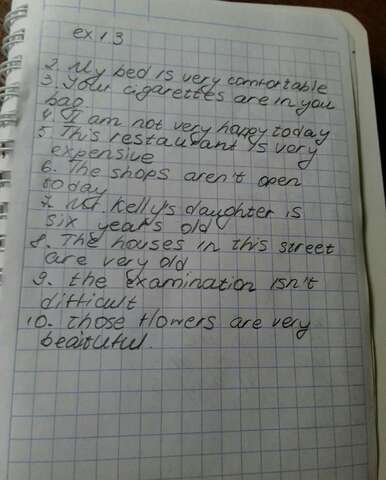 ex 1.3
2. My bed is very comfortable
3. Your cigarettes are in you
bag.
4. I am not very happy today
5. This restaurant is very
expensive
6. The shops aren't open
today
7. Mr. Kelly's daughter is
six year's old
8. The houses in this street
are very old
9. the examination isn't
difficult
10. Those flowers are very
beautiful.